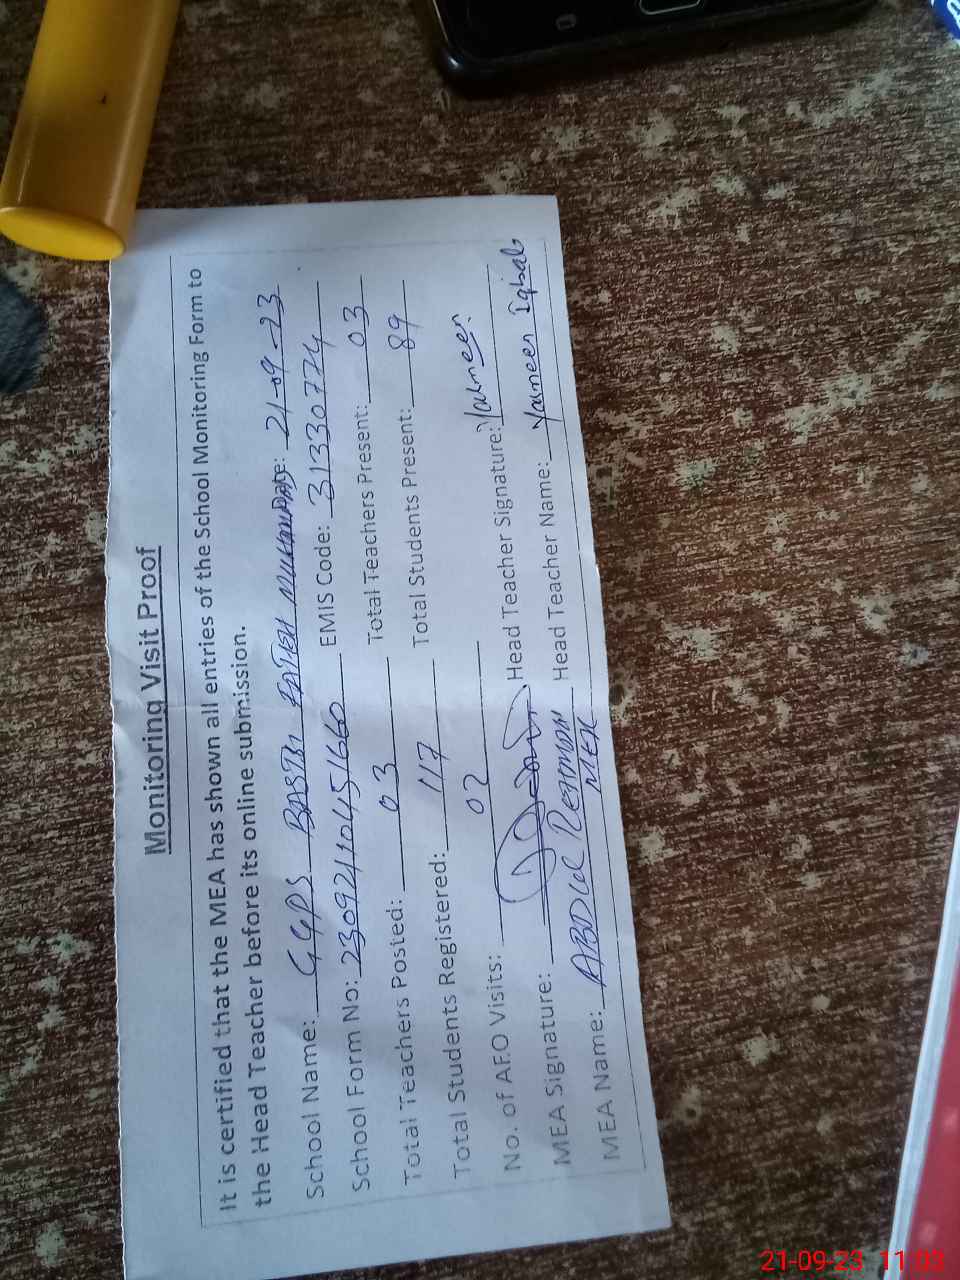 Monitoring Visit Proof
It is certified that the MEA has shown all entries of the School Monitoring Form to
the Head Teacher before its online submission.
School Name: GGPS BASTI FATEH MUHAMMAD Date: 21-09-23
School Form No: EMIS Code: 31330774
Total Teachers Posted: 03 Total Teachers Present: 03
Total Students Registered: 117 Total Students Present: 89
No. of AEO Visits: 02
MEA Signature: Head Teacher Signature: Yasmeen
MEA Name: ABDUL REHMAN Head Teacher Name: Yasmeen Iqbal
MEA
21-09-23 11:03